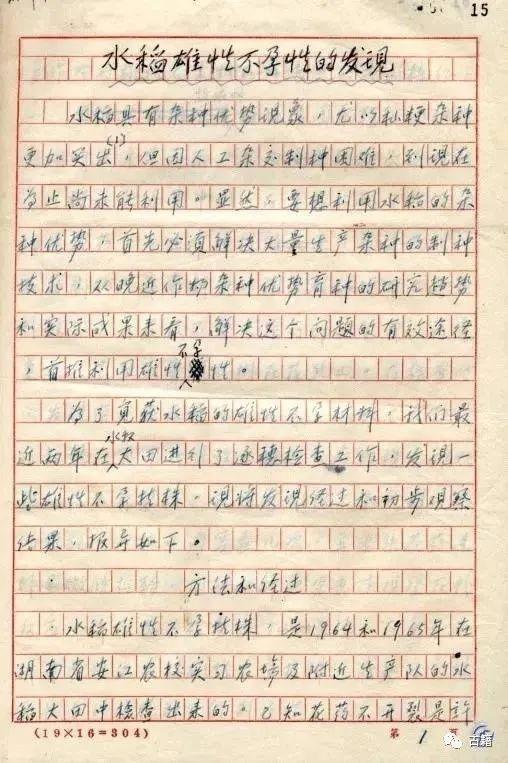 15
水稻雄性不孕性的发现
水稻具有杂种优势现象，尤以籼粳杂种
更加突出(1)，但因人工杂交制种困难，到现在
为止尚未能利用。显然，要想利用水稻的杂
种优势，首先必须解决大量生产杂种的制种
技术，从晚近作物杂种优势育种的研究趋势
和实际成果来看，解决这个问题的有效途径
，首推利用雄性不孕性。
为了寻获水稻的雄性不孕材料，我们最
近两年在水稻大田进行了逐穗检查工作，发现一
些雄性不孕植株，现将发现经过和初步观察
结果，报导如下。
方法和经过
水稻雄性不孕植株，是1964和1965年在
湖南省安江农校实习农场及附近生产队的水
稻大田中检查出来的。已知花药不开裂是许
(19×16=304)
第 1 页
古籍